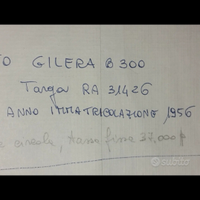 GILERA B 300
Targa RA 31426
ANNO IMMATRICOLAZIONE 1956
circola, 37,000
subito